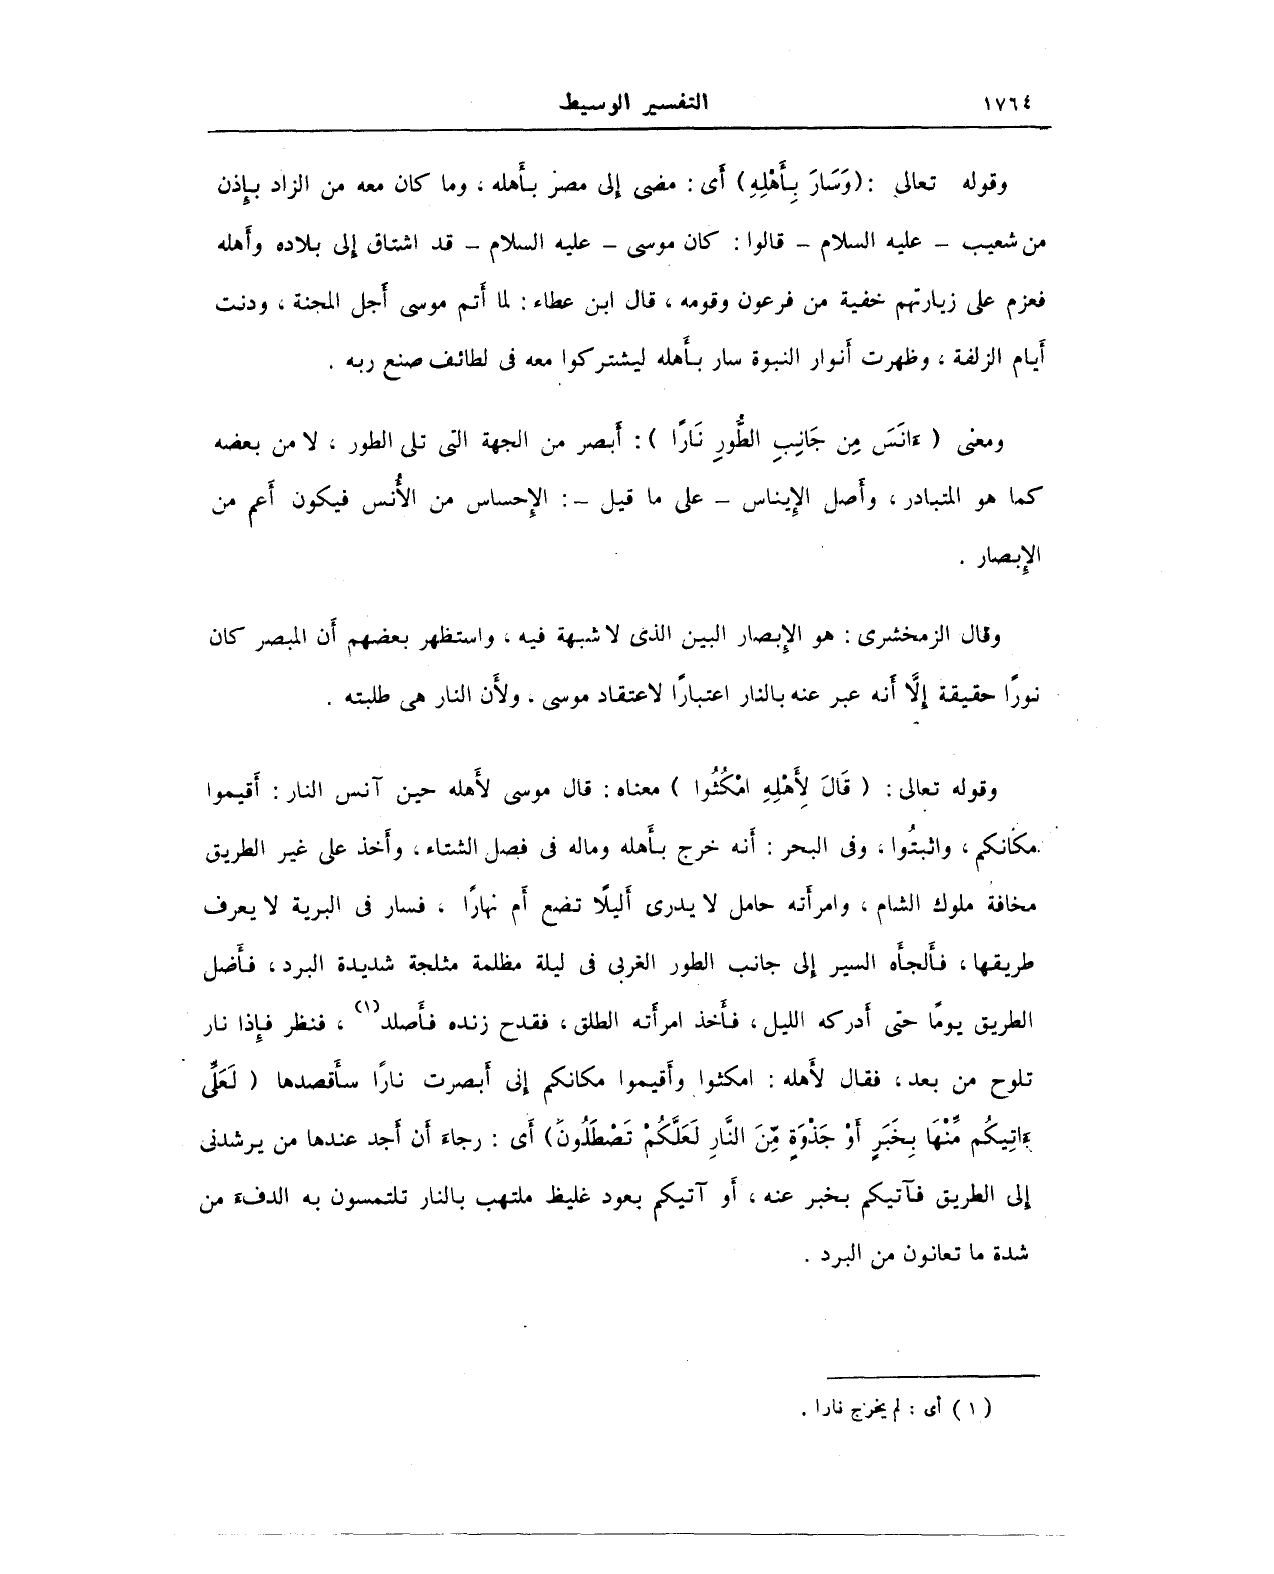 ١٧٦٤ التفسير الوسيط
وقوله تعالى : (وَسَارَ بِأَهْلِهِ) أَى : مضى إلى مصر بأَهله ، وما كان معه من الزاد بإِذن
من شعيب – عليه السلام – قالوا : كان موسى – عليه السلام – قد اشتاق إِلى بلاده وأَهله
فعزم على زيارتهم خفية من فرعون وقومه ، قال ابن عطاء : لما أَتم موسى أَجل المحنة ، ودنت
أَيام الزلفة ، وظهرت أَنوار النبوة سار بأَهله ليشتركوا معه فى لطائف صنع ربه .
ومعنى ( ءَانَسَ مِن جَانِبِ الطُّورِ نَارًا ) : أَبصر من الجهة التى تلى الطور ، لا من بعضه
كما هو المتبادر ، وأَصل الإِيناس – على ما قيل – : الإِحساس من الأُنس فيكون أَعم من
الإِبصار .
وقال الزمخشرى : هو الإِبصار البين الذى لا شبهة فيه ، واستظهر بعضهم أَن المبصر كان
نورًا حقيقة إِلَّا أَنه عبر عنه بالنار اعتبارًا لاعتقاد موسى . ولأَن النار هى طلبته .
وقوله تعالى : ( قَالَ لِأَهْلِهِ امْكُثُوا ) معناه : قال موسى لأَهله حين آنس النار : أَقيموا
مكانكم ، واثبتُوا ، وفى البحر : أَنه خرج بأَهله وماله فى فصل الشتاء ، وأَخذ على غير الطريق
مخافة ملوك الشام ، وامرأَته حامل لا يدرى أَليلًا تضع أَم نهارًا ، فسار فى البرية لا يعرف
طريقها ، فأَلجأَه السير إِلى جانب الطور الغربى فى ليلة مظلمة مثلجة شديدة البرد ، فأَضل
الطريق يومًا حتى أَدركه الليل ، فأَخذ امرأَته الطلق ، فقدح زنده فأَصلد(١) ، فنظر فإِذا نار
تلوح من بعد ، فقال لأَهله : امكثوا وأَقيموا مكانكم إِنى أَبصرت نارًا سأَقصدها ( لَعَلِّى
ءَاتِيكُم مِّنْهَا بِخَبَرٍ أَوْ جَذْوَةٍ مِّنَ النَّارِ لَعَلَّكُمْ تَصْطَلُونَ) أَى : رجاءَ أَن أَجد عندها من يرشدنى
إِلى الطريق فآتيكم بخبر عنه ، أَو آتيكم بعود غليظ ملتهب بالنار تلتمسون به الدفءَ من
شدة ما تعانون من البرد .
( ١ ) أى : لم يخرج نارا .